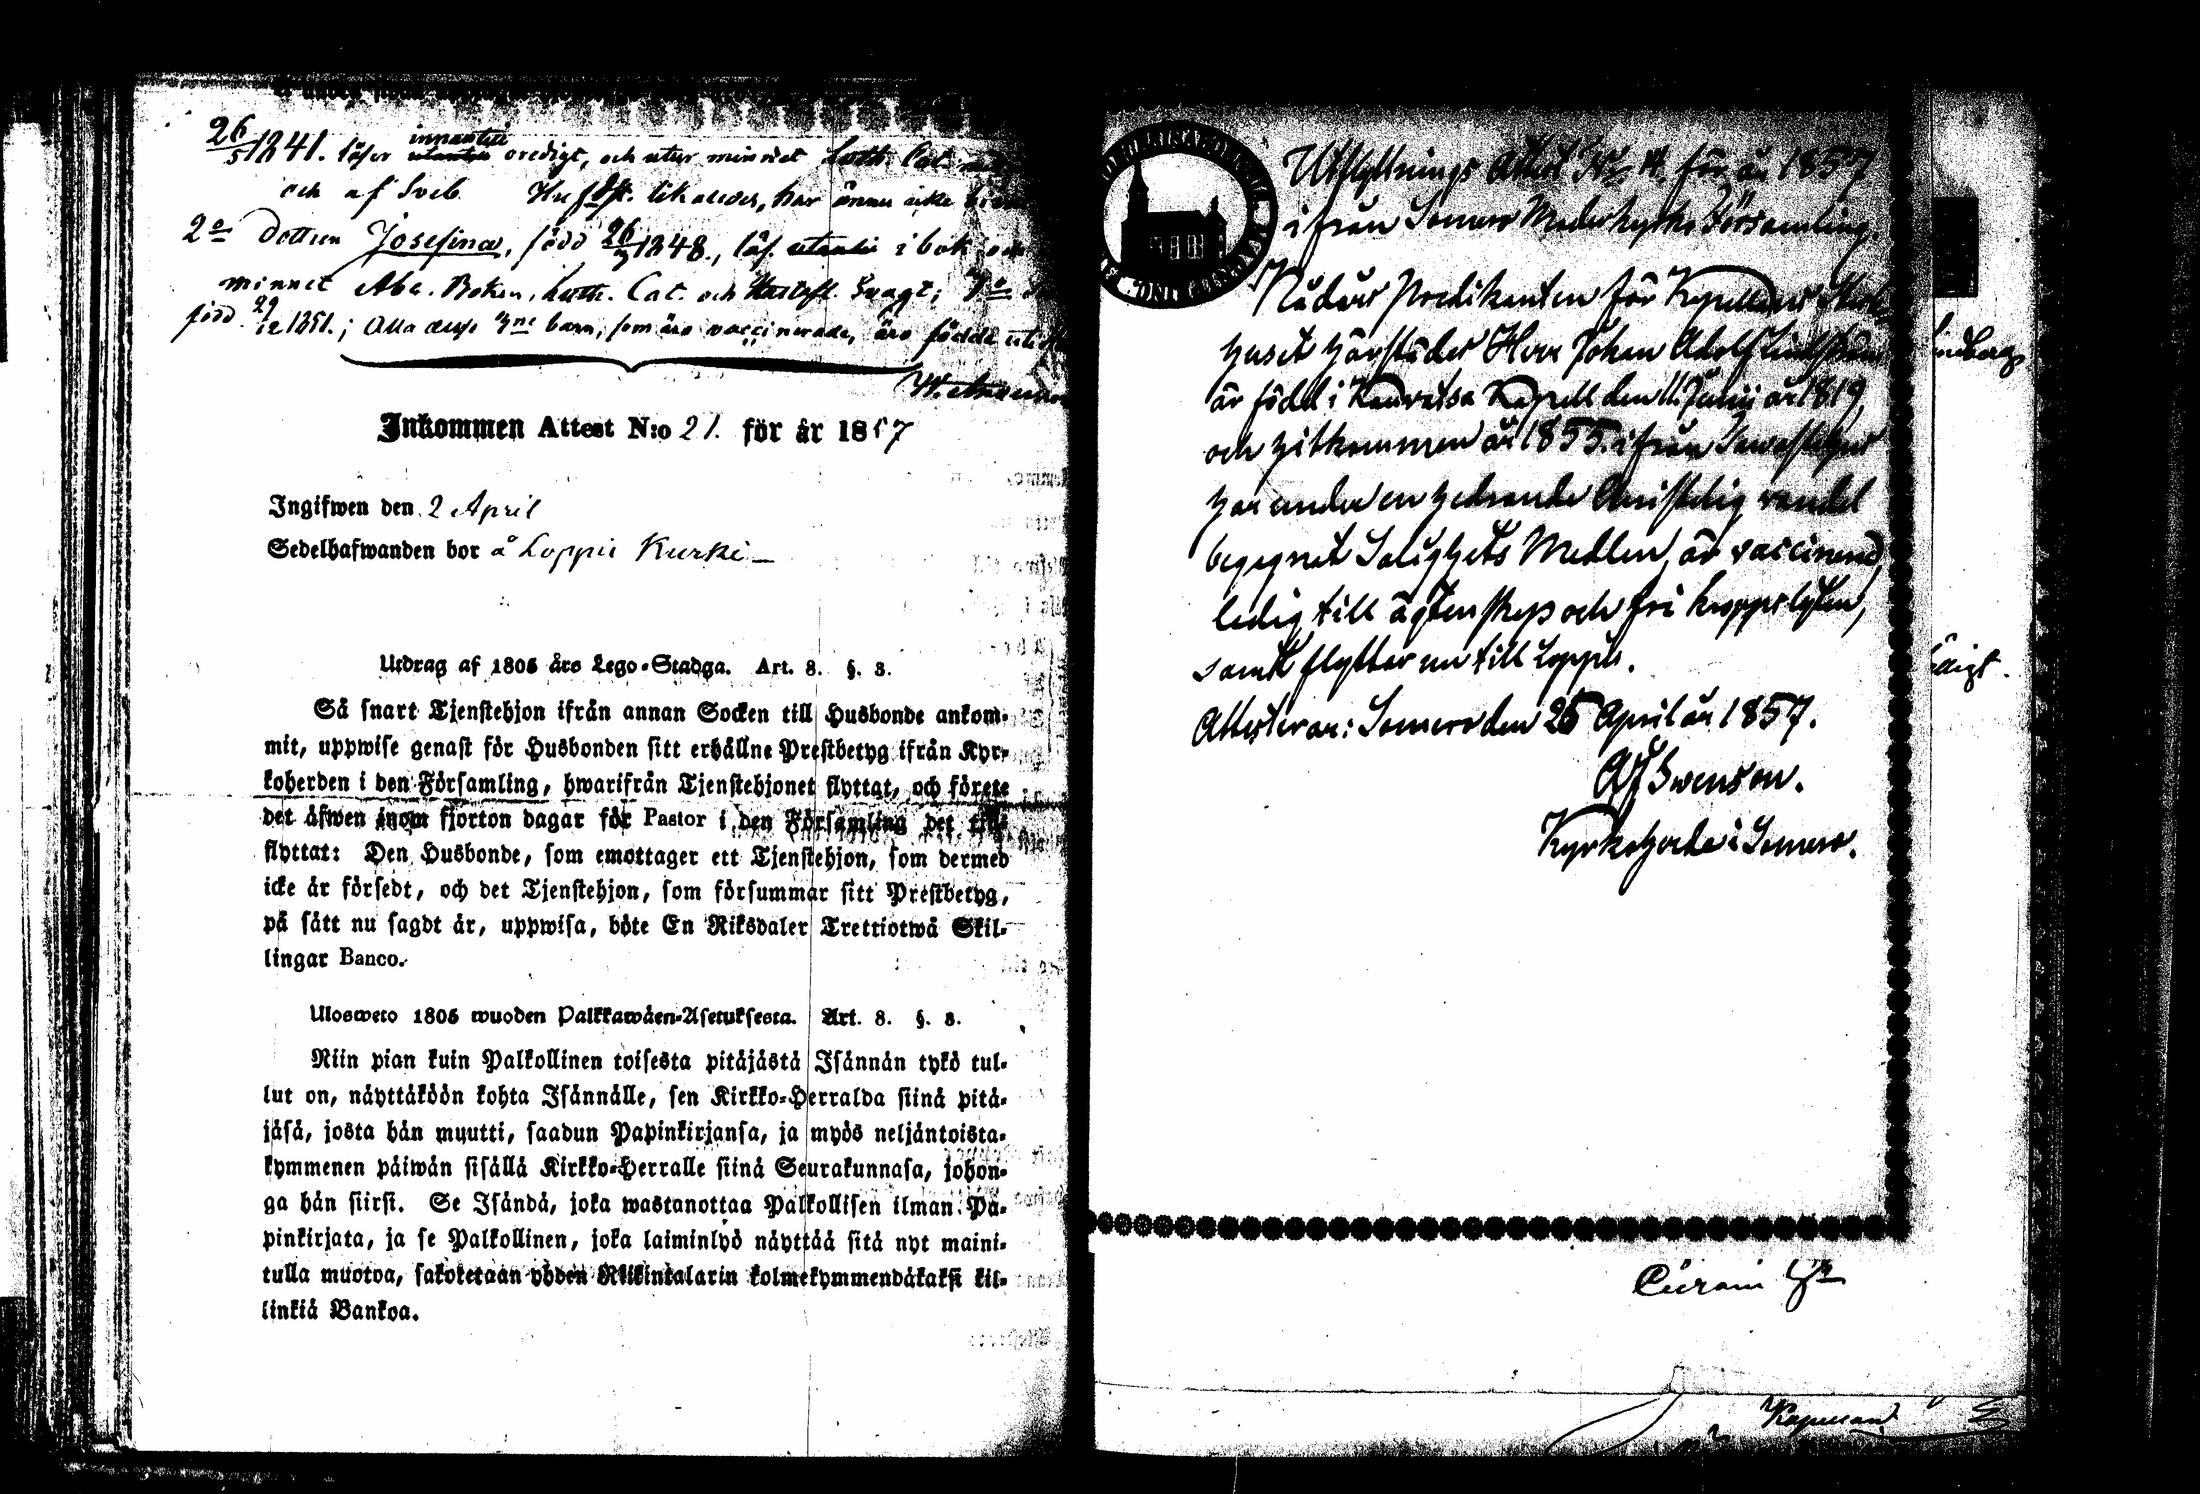 26/5 1841. läser innantill oredigt, och utur minnet Luth. Cat.
och af Sveb. Husfl. likaledes, har ännu icke
2o Dottren Josefina, född 26/3 1848., läs. i bok och
minnet Abc. Boken, Luth. Cat. och Hustafl. svagt; 3o
född 29/12 1851.; Alla dessa 3ne barn, som äro vaccinerade, äro födde
Inkommen Attest N:o 21. för år 1857
Ingifwen den 2 April
Sedelhafwanden bor å Loppis Kurki
Utdrag af 1805 års Lego-Stadga. Art. 8. §. 3.
Så snart Tjenstehjon ifrån annan Socken till Husbonde ankom-
mit, uppwise genast för Husbonden sitt erhållne Prestbetyg ifrån Kyr-
koherden i den Församling, hwarifrån Tjenstehjonet flyttat, och förete
det äfwen inom fjorton dagar för Pastor i den Församling det till-
flyttat: Den Husbonde, som emottager ett Tjenstehjon, som dermed
icke är försedt, och det Tjenstehjon, som försummar sitt Prestbetyg,
på sätt nu sagdt är, uppwisa, böte En Riksdaler Trettiotwå Skil-
lingar Banco.
Ulosweto 1805 wuoden Palkkawäen-Asetuksesta. Art. 8. §. 3.
Niin pian kuin Palkollinen toisesta pitäjästä Isännän tykö tul-
lut on, näyttäköön kohta Isännälle, sen Kirkko-Herralda siinä pitä-
jäsä, josta hän muutti, saadun Papinkirjansa, ja myös neljäntoista-
kymmenen päiwän sisällä Kirkko-Herralle siinä Seurakunnasa, johon-
ga hän siirsi. Se Isändä, joka wastanottaa Palkollisen ilman Pa-
pinkirjata, ja se Palkollinen, joka laiminlyö näyttää sitä nyt maini-
tulla muotoa, sakotetaan yhden Riikintalarin kolmekymmendäkaksi kil-
linkiä Bankoa.
Utflyttnings Attest No 4. för år 1857
ifrån Somero Moderkyrko Församling.
Nådårs Predikanten för Kapellans
huset härstädes Herr Johan Adolf Lindström
är född i Kauvatsa Kapell den 11 Junii år 1819,
och hitkommen år 1855. ifrån Tavastehus
har under en hedrande Christelig vandel
begagnat Salighets Medlen, är vaccinerad,
ledig till ägtenskap och fri kroppslyten,
samt flyttar nu till Loppis.
Attesteras: Somero den 25 April år 1857.
Af Svenson.
Kyrkoherde i Somero.